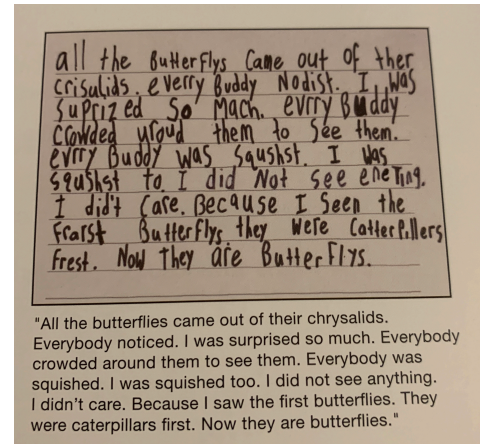 all the ButterFlys Came out of ther
crisulids. everry Buddy Nodist. I was
suprized so mach. evrry Buddy
crowded uroud them to see them.
evrry Buddy was squshst. I was
squshst to. I did Not see eneTing.
I did't care. Because I seen the
frarst ButterFlys they were CatterPillers
frest. Now they are ButterFlys.
"All the butterflies came out of their chrysalids.
Everybody noticed. I was surprised so much. Everybody
crowded around them to see them. Everybody was
squished. I was squished too. I did not see anything.
I didn't care. Because I saw the first butterflies. They
were caterpillars first. Now they are butterflies."